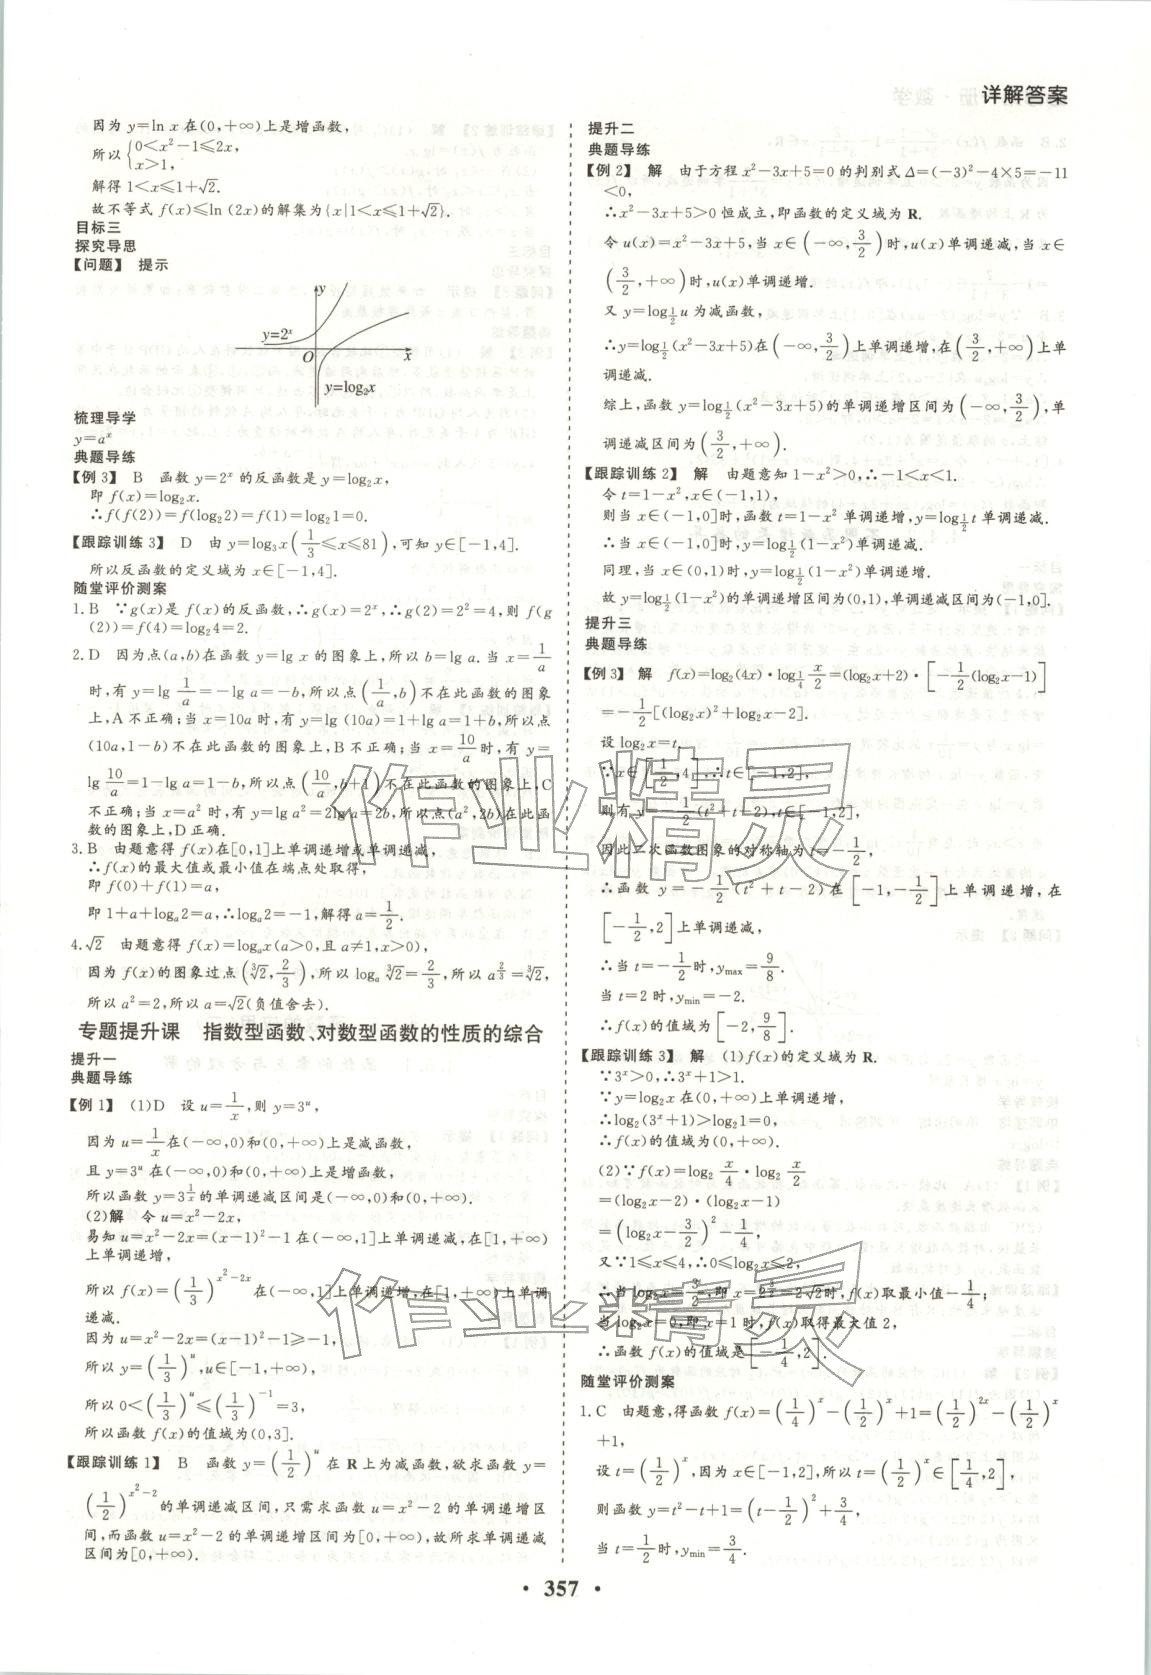 详解答案
因为 y=ln x 在(0,+∞)上是增函数,
所以{0<x²-1≤2x,
x>1,
解得 1<x≤1+√2.
故不等式 f(x)≤ln (2x)的解集为{x|1<x≤1+√2}.
目标三
探究导思
【问题】 提示
y
y=2ˣ
O
x
y=log₂x
梳理导学
y=aˣ
典题导练
【例 3】 B 函数 y=2ˣ 的反函数是 y=log₂x,
即 f(x)=log₂x.
∴f(f(2))=f(log₂2)=f(1)=log₂1=0.
【跟踪训练 3】 D 由 y=log₃x(1/3≤x≤81),可知 y∈[-1,4].
所以反函数的定义域为 x∈[-1,4].
随堂评价测案
1.B ∵g(x)是 f(x)的反函数,∴g(x)=2ˣ,∴g(2)=2²=4,则 f(g
(2))=f(4)=log₂4=2.
2.D 因为点(a,b)在函数 y=lg x 的图象上,所以 b=lg a.当 x=1/a
时,有 y=lg 1/a=-lg a=-b,所以点(1/a,b)不在此函数的图象
上,A 不正确;当 x=10a 时,有 y=lg (10a)=1+lg a=1+b,所以点
(10a,1-b)不在此函数的图象上,B不正确;当 x=10/a 时,有 y=
lg 10/a=1-lg a=1-b,所以点(10/a,b+1)不在此函数的图象上,C
不正确;当 x=a² 时,有 y=lg a²=2lg a=2b,所以点(a²,2b)在此函
数的图象上,D正确.
3.B 由题意得 f(x)在[0,1]上单调递增或单调递减,
∴f(x)的最大值或最小值在端点处取得,
即 f(0)+f(1)=a,
即 1+a+logₐ2=a,∴logₐ2=-1,解得 a=1/2.
4.√2 由题意得 f(x)=logₐx(a>0,且 a≠1,x>0),
因为 f(x)的图象过点(∛2,2/3),所以 logₐ∛2=2/3,所以 a^(2/3)=∛2,
所以 a²=2,所以 a=√2(负值舍去).
专题提升课 指数型函数、对数型函数的性质的综合
提升一
典题导练
【例 1】 (1)D 设 u=1/x,则 y=3ᵘ,
因为 u=1/x 在(-∞,0)和(0,+∞)上是减函数,
且 y=3ᵘ 在(-∞,0)和(0,+∞)上是增函数,
所以函数 y=3^(1/x) 的单调递减区间是(-∞,0)和(0,+∞).
(2)解 令 u=x²-2x,
易知 u=x²-2x=(x-1)²-1 在(-∞,1]上单调递减,在[1,+∞)
上单调递增,
所以 f(x)=(1/3)^(x²-2x) 在(-∞,1]上单调递增,在[1,+∞)上单调
递减.
因为 u=x²-2x=(x-1)²-1≥-1,
所以 y=(1/3)ᵘ,u∈[-1,+∞),
所以 0<(1/3)ᵘ≤(1/3)⁻¹=3,
所以函数 f(x)的值域为(0,3].
【跟踪训练 1】 B 函数 y=(1/2)ᵘ 在 R 上为减函数,欲求函数 y=
(1/2)^(x²-2) 的单调递减区间,只需求函数 u=x²-2 的单调递增区
间,而函数 u=x²-2 的单调递增区间为[0,+∞),故所求单调递减
区间为[0,+∞).
提升二
典题导练
【例 2】 解 由于方程 x²-3x+5=0 的判别式 Δ=(-3)²-4×5=-11
<0,
∴x²-3x+5>0 恒成立,即函数的定义域为 R.
令 u(x)=x²-3x+5,当 x∈(-∞,3/2)时,u(x)单调递减,当 x∈
(3/2,+∞)时,u(x)单调递增.
又 y=log_(1/2) u 为减函数,
∴y=log_(1/2) (x²-3x+5)在(-∞,3/2)上单调递增,在(3/2,+∞)上单
调递减.
综上,函数 y=log_(1/2) (x²-3x+5)的单调递增区间为(-∞,3/2),单
调递减区间为(3/2,+∞).
【跟踪训练 2】 解 由题意知 1-x²>0,∴-1<x<1.
令 t=1-x²,x∈(-1,1),
则当 x∈(-1,0]时,函数 t=1-x² 单调递增,y=log_(1/2) t 单调递减.
∴当 x∈(-1,0]时,y=log_(1/2) (1-x²)单调递减.
同理,当 x∈(0,1)时,y=log_(1/2) (1-x²)单调递增.
故 y=log_(1/2) (1-x²)的单调递增区间为(0,1),单调递减区间为(-1,0].
提升三
典题导练
【例 3】 解 f(x)=log₂(4x)·log_(1/4) x/2=(log₂x+2)·[-1/2(log₂x-1)]
=-1/2[(log₂x)²+log₂x-2].
设 log₂x=t.
∵x∈[1/2,4],∴t∈[-1,2],
则有 y=-1/2(t²+t-2),t∈[-1,2],
因此二次函数图象的对称轴为 t=-1/2,
∴函数 y=-1/2(t²+t-2)在[-1,-1/2]上单调递增,在
[-1/2,2]上单调递减,
∴当 t=-1/2 时,yₘₐₓ=9/8.
当 t=2 时,yₘᵢₙ=-2.
∴f(x)的值域为[-2,9/8].
【跟踪训练 3】 解 (1)f(x)的定义域为 R.
∵3ˣ>0,∴3ˣ+1>1.
∵y=log₂x 在(0,+∞)上单调递增,
∴log₂(3ˣ+1)>log₂1=0.
∴f(x)的值域为(0,+∞).
(2)∵f(x)=log₂ x/4·log₂ x/2
=(log₂x-2)·(log₂x-1)
=(log₂x-3/2)²-1/4,
又∵1≤x≤4,∴0≤log₂x≤2,
∴当 log₂x=3/2,即 x=2^(3/2)=2√2 时,f(x)取最小值-1/4;
当 log₂x=0,即 x=1 时,f(x)取得最大值 2,
∴函数 f(x)的值域是[-1/4,2].
随堂评价测案
1.C 由题意,得函数 f(x)=(1/4)ˣ-(1/2)ˣ+1=(1/2)²ˣ-(1/2)ˣ
+1,
设 t=(1/2)ˣ,因为 x∈[-1,2],所以 t=(1/2)ˣ∈[1/4,2],
则函数 y=t²-t+1=(t-1/2)²+3/4,
当 t=1/2 时,yₘᵢₙ=3/4.
• 357 •
作业精灵
作业精灵